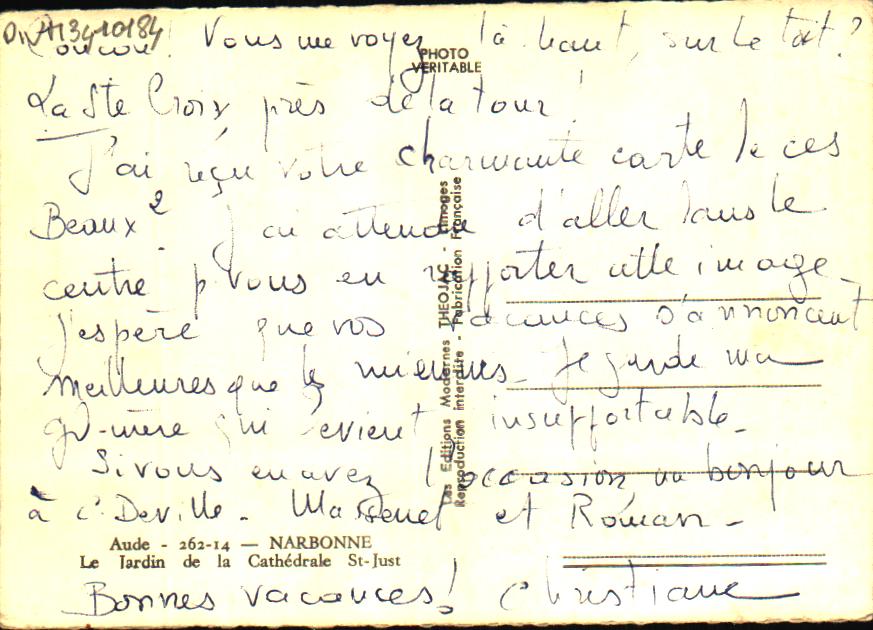 Coucou! Vous me voyez là haut, sur le toit?
PHOTO
VERITABLE
La Ste Croix près de la tour!
J'ai reçu votre charmante carte de ces
Beaux². J'ai attendu d'aller dans le
centre p vous en rapporter cette image.
J'espère que vos vacances s'annoncent
meilleures que les miennes. Je garde ma
gd-mère qui devient insupportable.
Si vous en avez l'occasion, un bonjour
à C. Deville. Massenet et Roman.
Les Editions Modernes THEOJAC - Limoges
Reproduction interdite - Fabrication Française
Aude - 262-14 — NARBONNE
Le Jardin de la Cathédrale St-Just
Bonnes vacances! Christiane